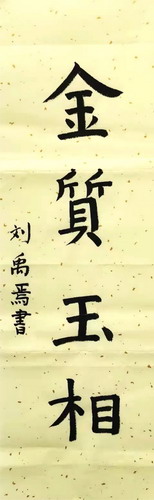 金質玉相
刘禹焉書